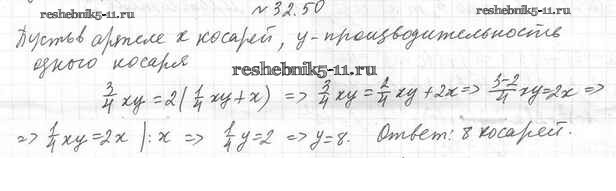 №32.50
reshebnik5-11.ru reshebnik5-11.ru
Пусть в артеле x косарей, y - производительность
одного косаря
reshebnik5-11.ru
3/4 xy = 2(1/4 xy + x) => 3/4 xy = 2/4 xy + 2x => 3-2/4 xy = 2x =>
=> 1/4 xy = 2x |: x => 1/4 y = 2 => y = 8. Ответ: 8 косарей.
reshebnik5-11.ru